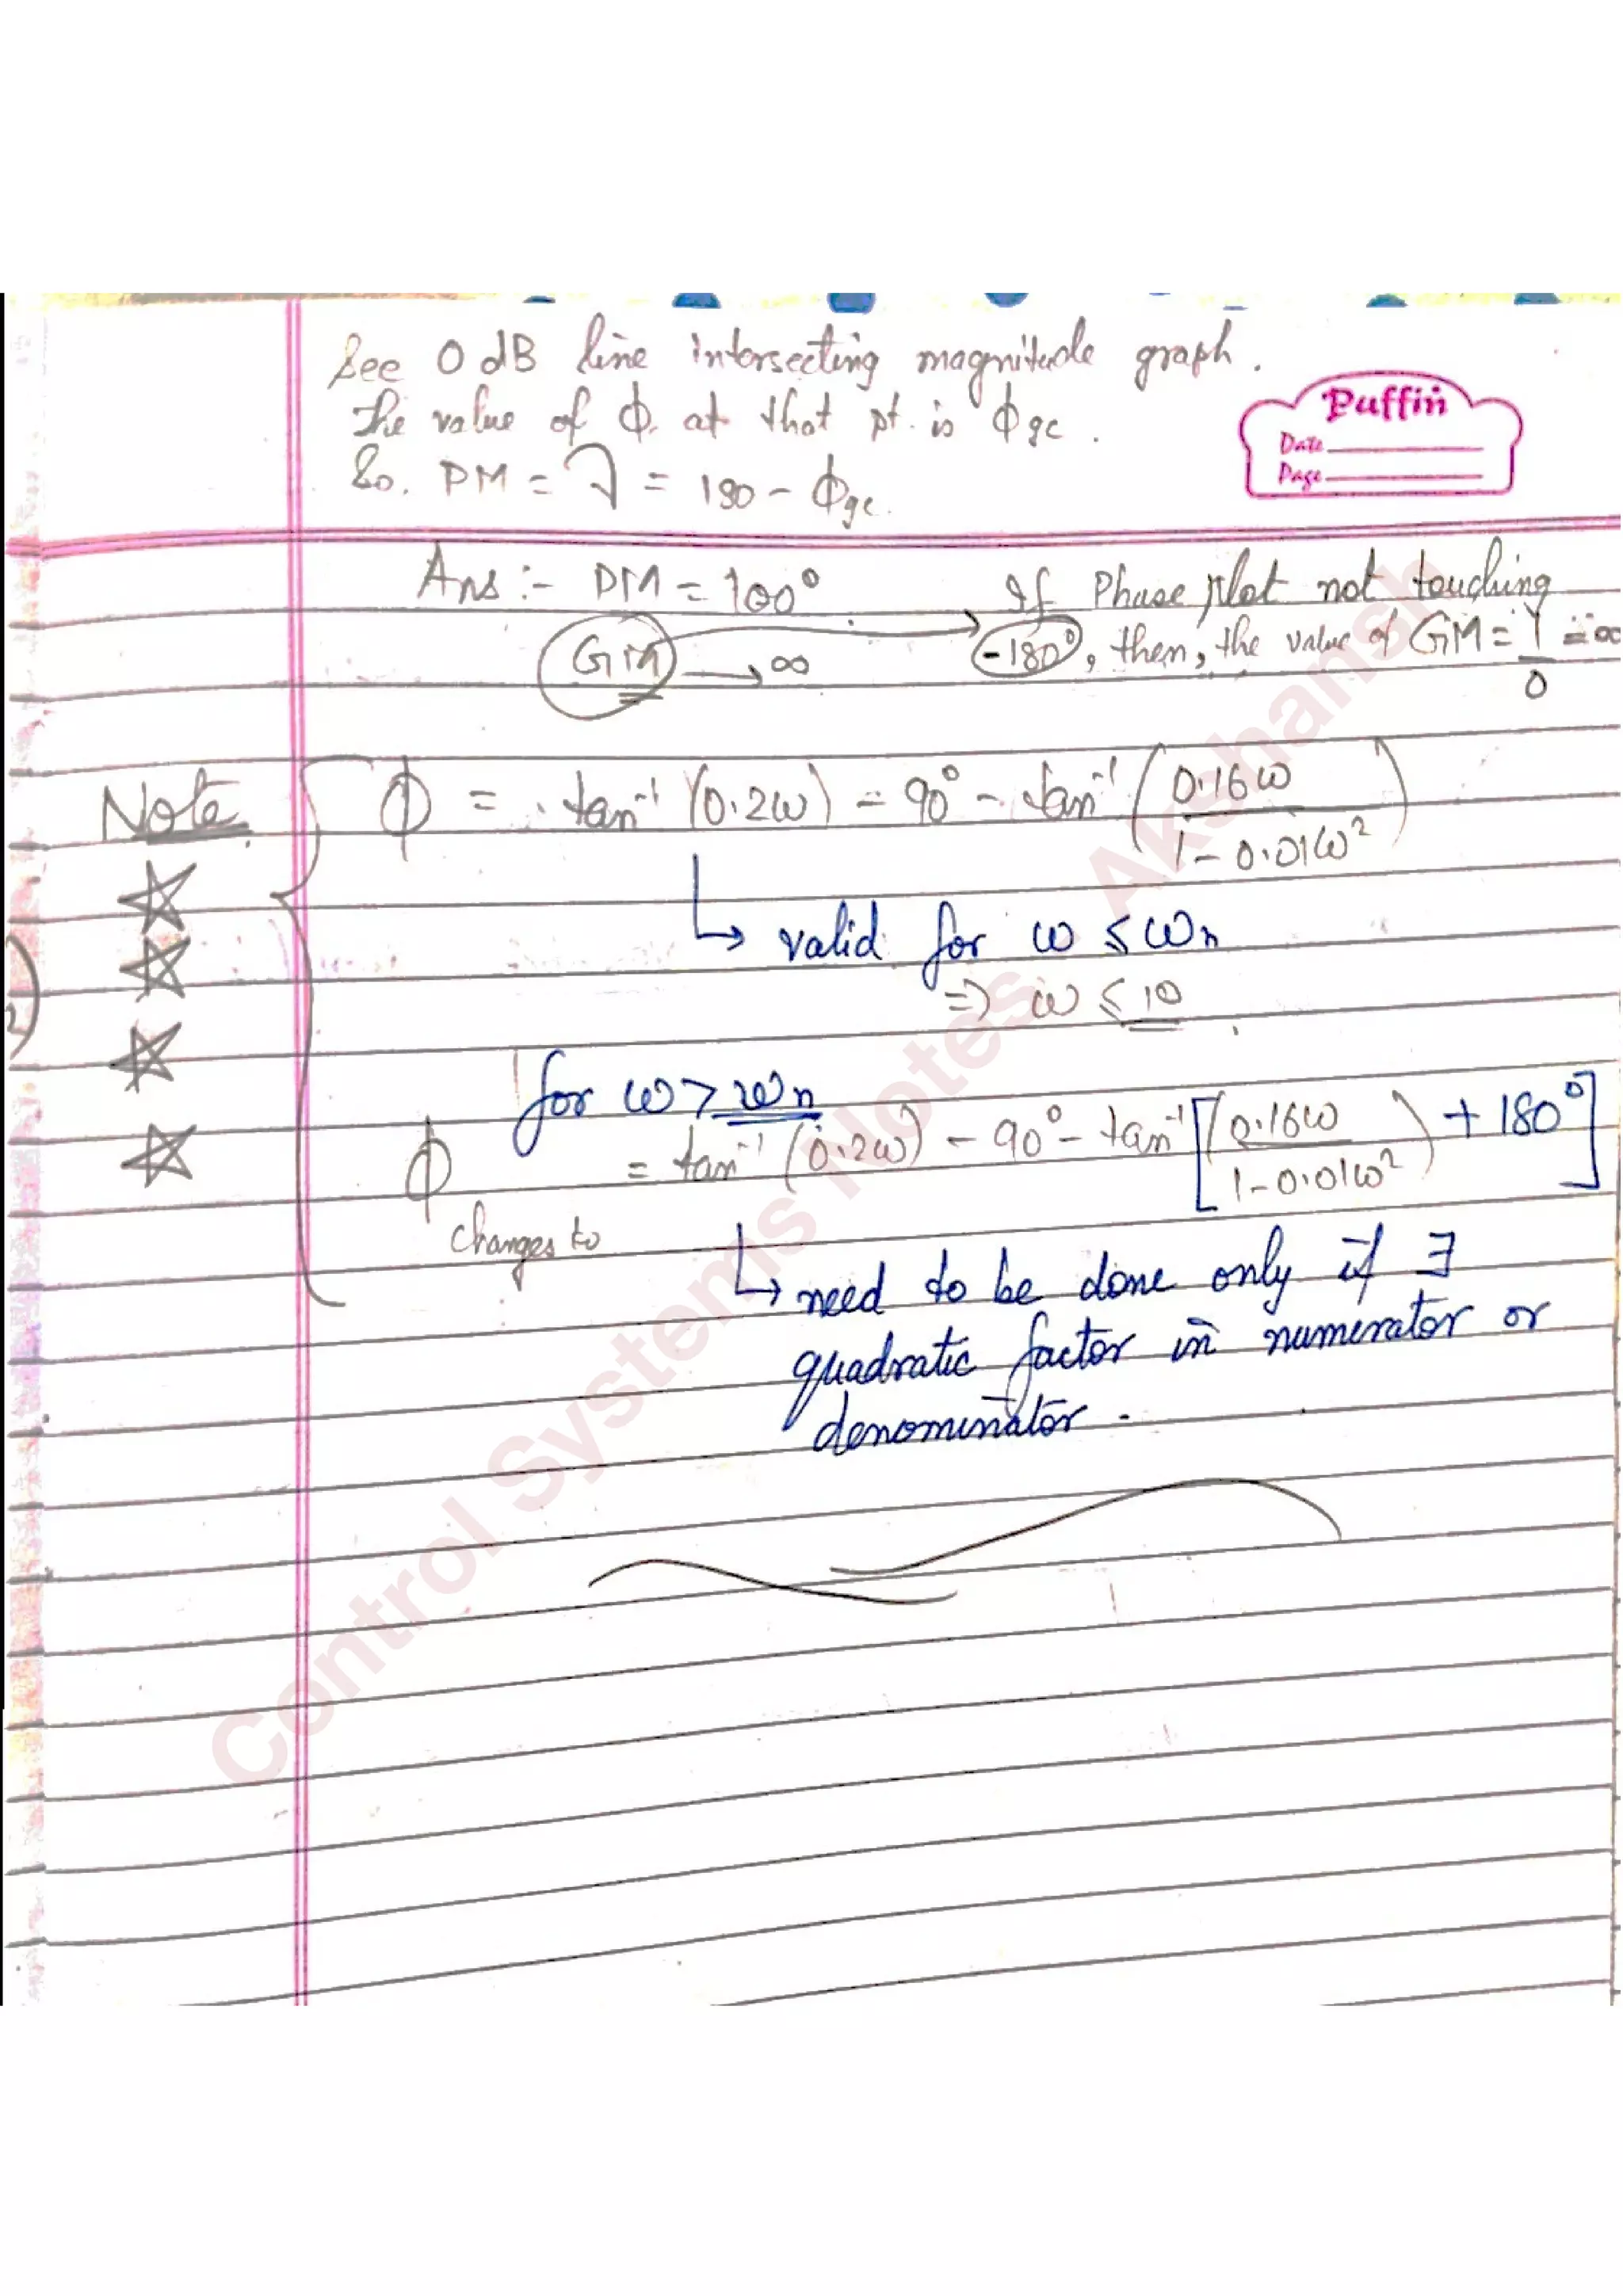 See 0 dB line intersecting magnitude graph.
The value of ϕ at that pt. is ϕgc.
So. PM = γ = 180 - ϕgc.
Puffin
Date
Page
Ans :- PM = 100°
If Phase plot not touching
GM → ∞
-180°, then, the value of GM = 1/0 = ∞
Note
ϕ = tan⁻¹(0.2ω) - 90° - tan⁻¹(0.16ω / 1 - 0.01ω²)
↳ valid for ω ≤ ωn
⇒ ω ≤ 10
for ω > ωn
ϕ = tan⁻¹(0.2ω) - 90° - tan⁻¹[(0.16ω / 1 - 0.01ω²) + 180°]
changes to
↳ need to be done only if ∃
quadratic factor in numerator or
denominator.
Control Systems Notes Akshansh